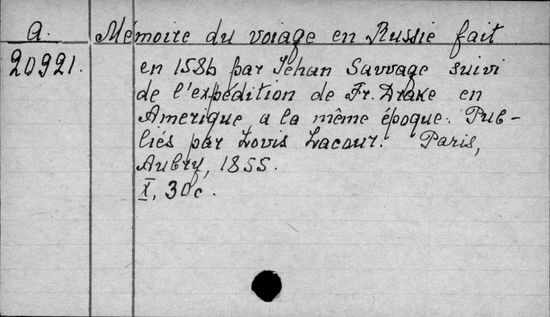 A. Mémoire du voiage en Russie fait
20921. en 1586 par Jehan Sauvage suivi
de l'expédition de Fr. Drake en
Amerique a la même époque. Pub-
liés par Louis Lacour. Paris,
Aubry, 1855.
X, 30c.